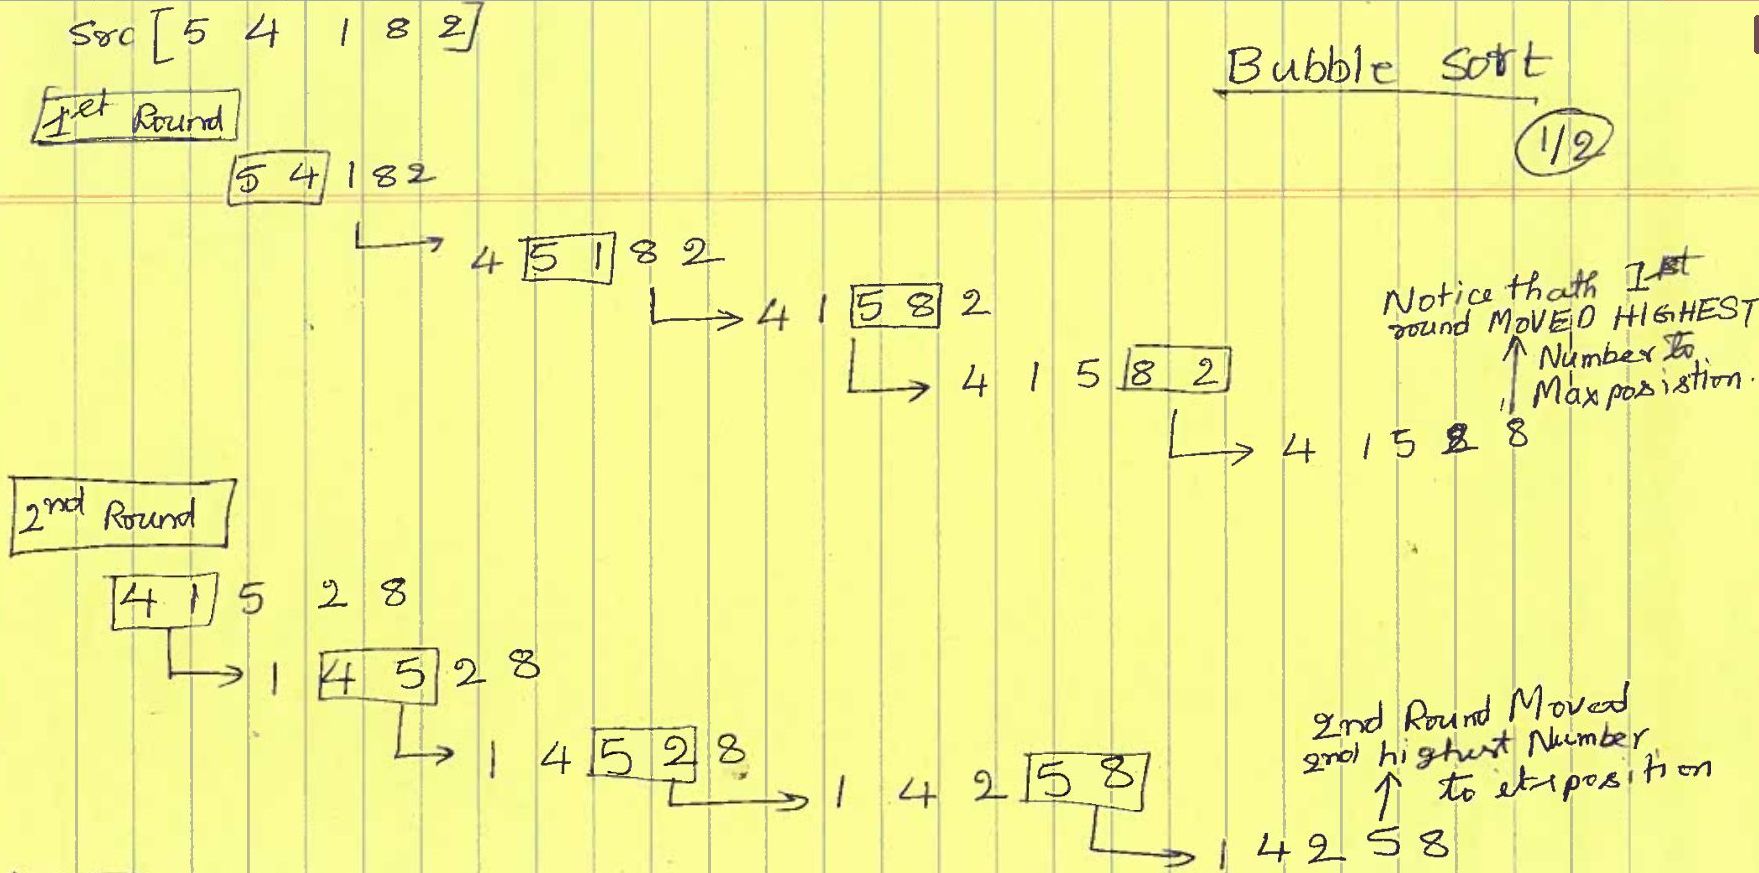 Src [5 4 1 8 2]
Bubble Sort
1/2
1st Round
5 4 1 8 2
4 5 1 8 2
4 1 5 8 2
4 1 5 8 2
4 1 5 2 8
Notice thath 1st
round MOVED HIGHEST
Number to
Max posistion.
2nd Round
4 1 5 2 8
1 4 5 2 8
1 4 5 2 8
1 4 2 5 8
1 4 2 5 8
2nd Round Moved
2nd highest Number
to its position